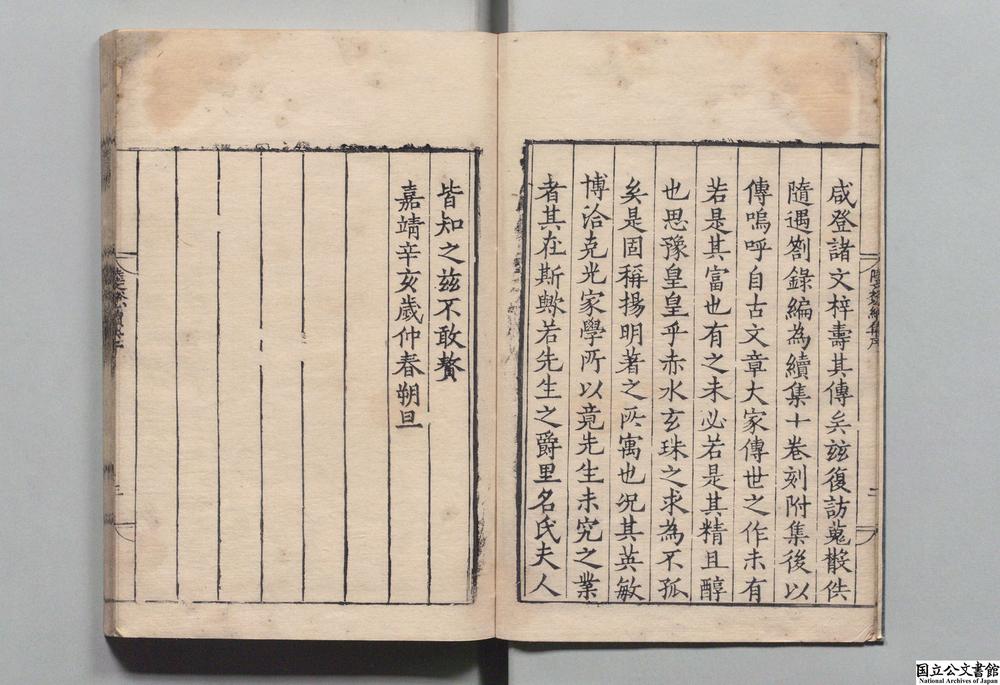 咸登諸文梓壽其傳矣兹復訪蒐散佚
隨遇劄錄編為續集十卷刻附集後以
傳嗚呼自古文章大家傳世之作未有
若是其富也有之未必若是其精且醇
也思豫皇皇乎赤水玄珠之求為不孤
矣是固稱揚明著之所寓也況其英敏
博洽克光家學所以竟先生未究之業
者其在斯歟若先生之爵里名氏夫人
皆知之兹不敢贅
嘉靖辛亥歲仲春朔旦
国立公文書館
National Archives of Japan